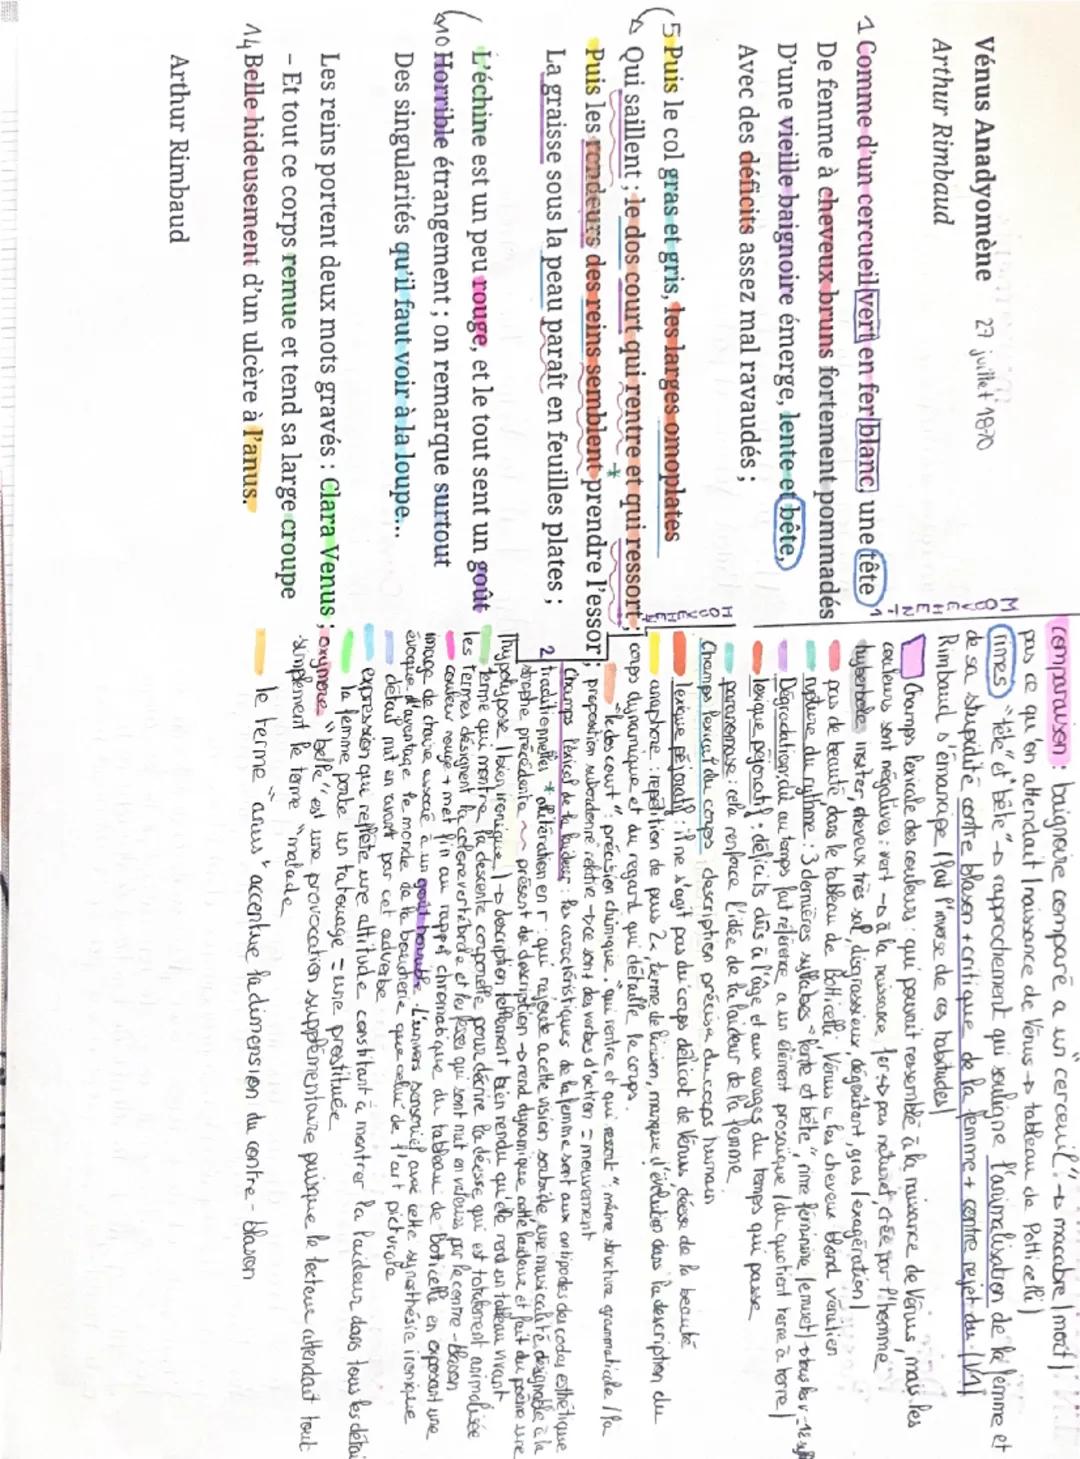 Vénus Anadyomène 27 juillet 1870
Arthur Rimbaud
1 Comme d'un cercueil vert en fer blanc, une tête
De femme à cheveux bruns fortement pommadés
D'une vieille baignoire émerge, lente et bête,
Avec des déficits assez mal ravaudés ;
5 Puis le col gras et gris, les larges omoplates
Qui saillent ; le dos court qui rentre et qui ressort ;
Puis les rondeurs des reins semblent prendre l'essor ;
La graisse sous la peau paraît en feuilles plates ;
L'échine est un peu rouge, et le tout sent un goût
10 Horrible étrangement ; on remarque surtout
Des singularités qu'il faut voir à la loupe...
Les reins portent deux mots gravés : Clara Venus ;
- Et tout ce corps remue et tend sa large croupe
14 Belle hideusement d'un ulcère à l'anus.
Arthur Rimbaud
MOUVEMENT 1
comparaison : baignoire comparé a un "cerceuil" → macabre (mort),
pas ce qu'on attendait (naissance de Vénus → tableau de Botticelli)
rimes "tête" et "bête" → rapprochement qui souligne l'animalisation de la femme et
de sa stupidité contre blason + critique de la femme + contre rejet du (V1)
Rimbaud s'émancipe (fait l'inverse de ces habitudes)
Champs lexicale des couleurs : qui pouvait ressemblé à la naissance de Vénus, mais les
couleurs sont négatives : vert → à la naissance, fer → pas naturel, crée par l'homme
hyberbole insister, cheveux très sal, disgrassieux, dégoûtant, gras (exagération)
pas de beauté dans le tableau de Botticelli Vénus a les cheveux blond vénitien
rupture du rythme : 3 dernières syllabes "lente et bête", rime féminine (e muet)
Dégradation dû au temps fait référence a un élément prosaïque (du quotient terre à terre)
lexique péjoratif : déficits dûs à l'âge et aux ravages du temps qui passe
paronomase : cela renforce l'idée de la laideur de la femme
MOUVEMENT 2
Champs lexical du corps : description précise du corps humain
lexique péjoratif : il ne s'agit pas du corps délicat de Vénus, déesse de la beauté
anaphore : répétition de puis 2x, terme de liaison, marque l'évolution dans la description du
corps dynamique et du regard qui détaille le corps.
"le dos court" : précision clinique, "qui rentre et qui ressort" : même structure grammaticale (la
proposition subordonné relative → ce sont des verbes d'action = mouvement
Champs lexical de la laideur : les caractéristiques de la femme sont aux antipodes des codes esthétique
traditionnelles * alitération en r : qui rajoute a cette vision sordide une musicalité désagréable à la
strophe précédente ~ présent de description → rend dynamique cette laideur et fait du poème une
hypotypose (bien ironique) → description tellement bien rendu qu'elle rend un tableau vivant
terme qui montre la descente corporelle pour décrire la déesse qui est totalement animalisée
les termes désignent la colonne vertébrale et les fesses qui sont mit en valeurs par le contre-blason
couleur rouge → met fin au rappel chromatique du tableau de Botticelli en exposant une
image de chair associé à un goût horrible. L'univers sensoriel avec cette synesthésie ironique
évoque d'avantage le monde de la boucherie que celui de l'art picturale
détail mit en avant par cet adverbe
expression qui reflète une attitude constituant à montrer la laideur dans tous les détai
la femme porte un tatouage = une prostituée
oxymore "belle" est une provocation supplémentaire puisque le lecteur attendait tout
simplement le terme "malade"
le terme "anus" accentue la dimension du contre-blason